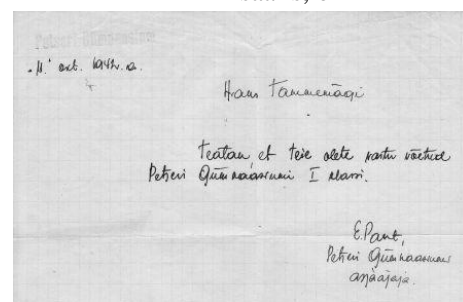 Petseri Gümnaasium
"11." okt. 1942. a.
Hans Tammemägi
Teatan, et Teie olete vastu võetud
Petseri Gümnaasiumi I klassi.
E. Pant,
Petseri Gümnaasiumi
asjaajaja.